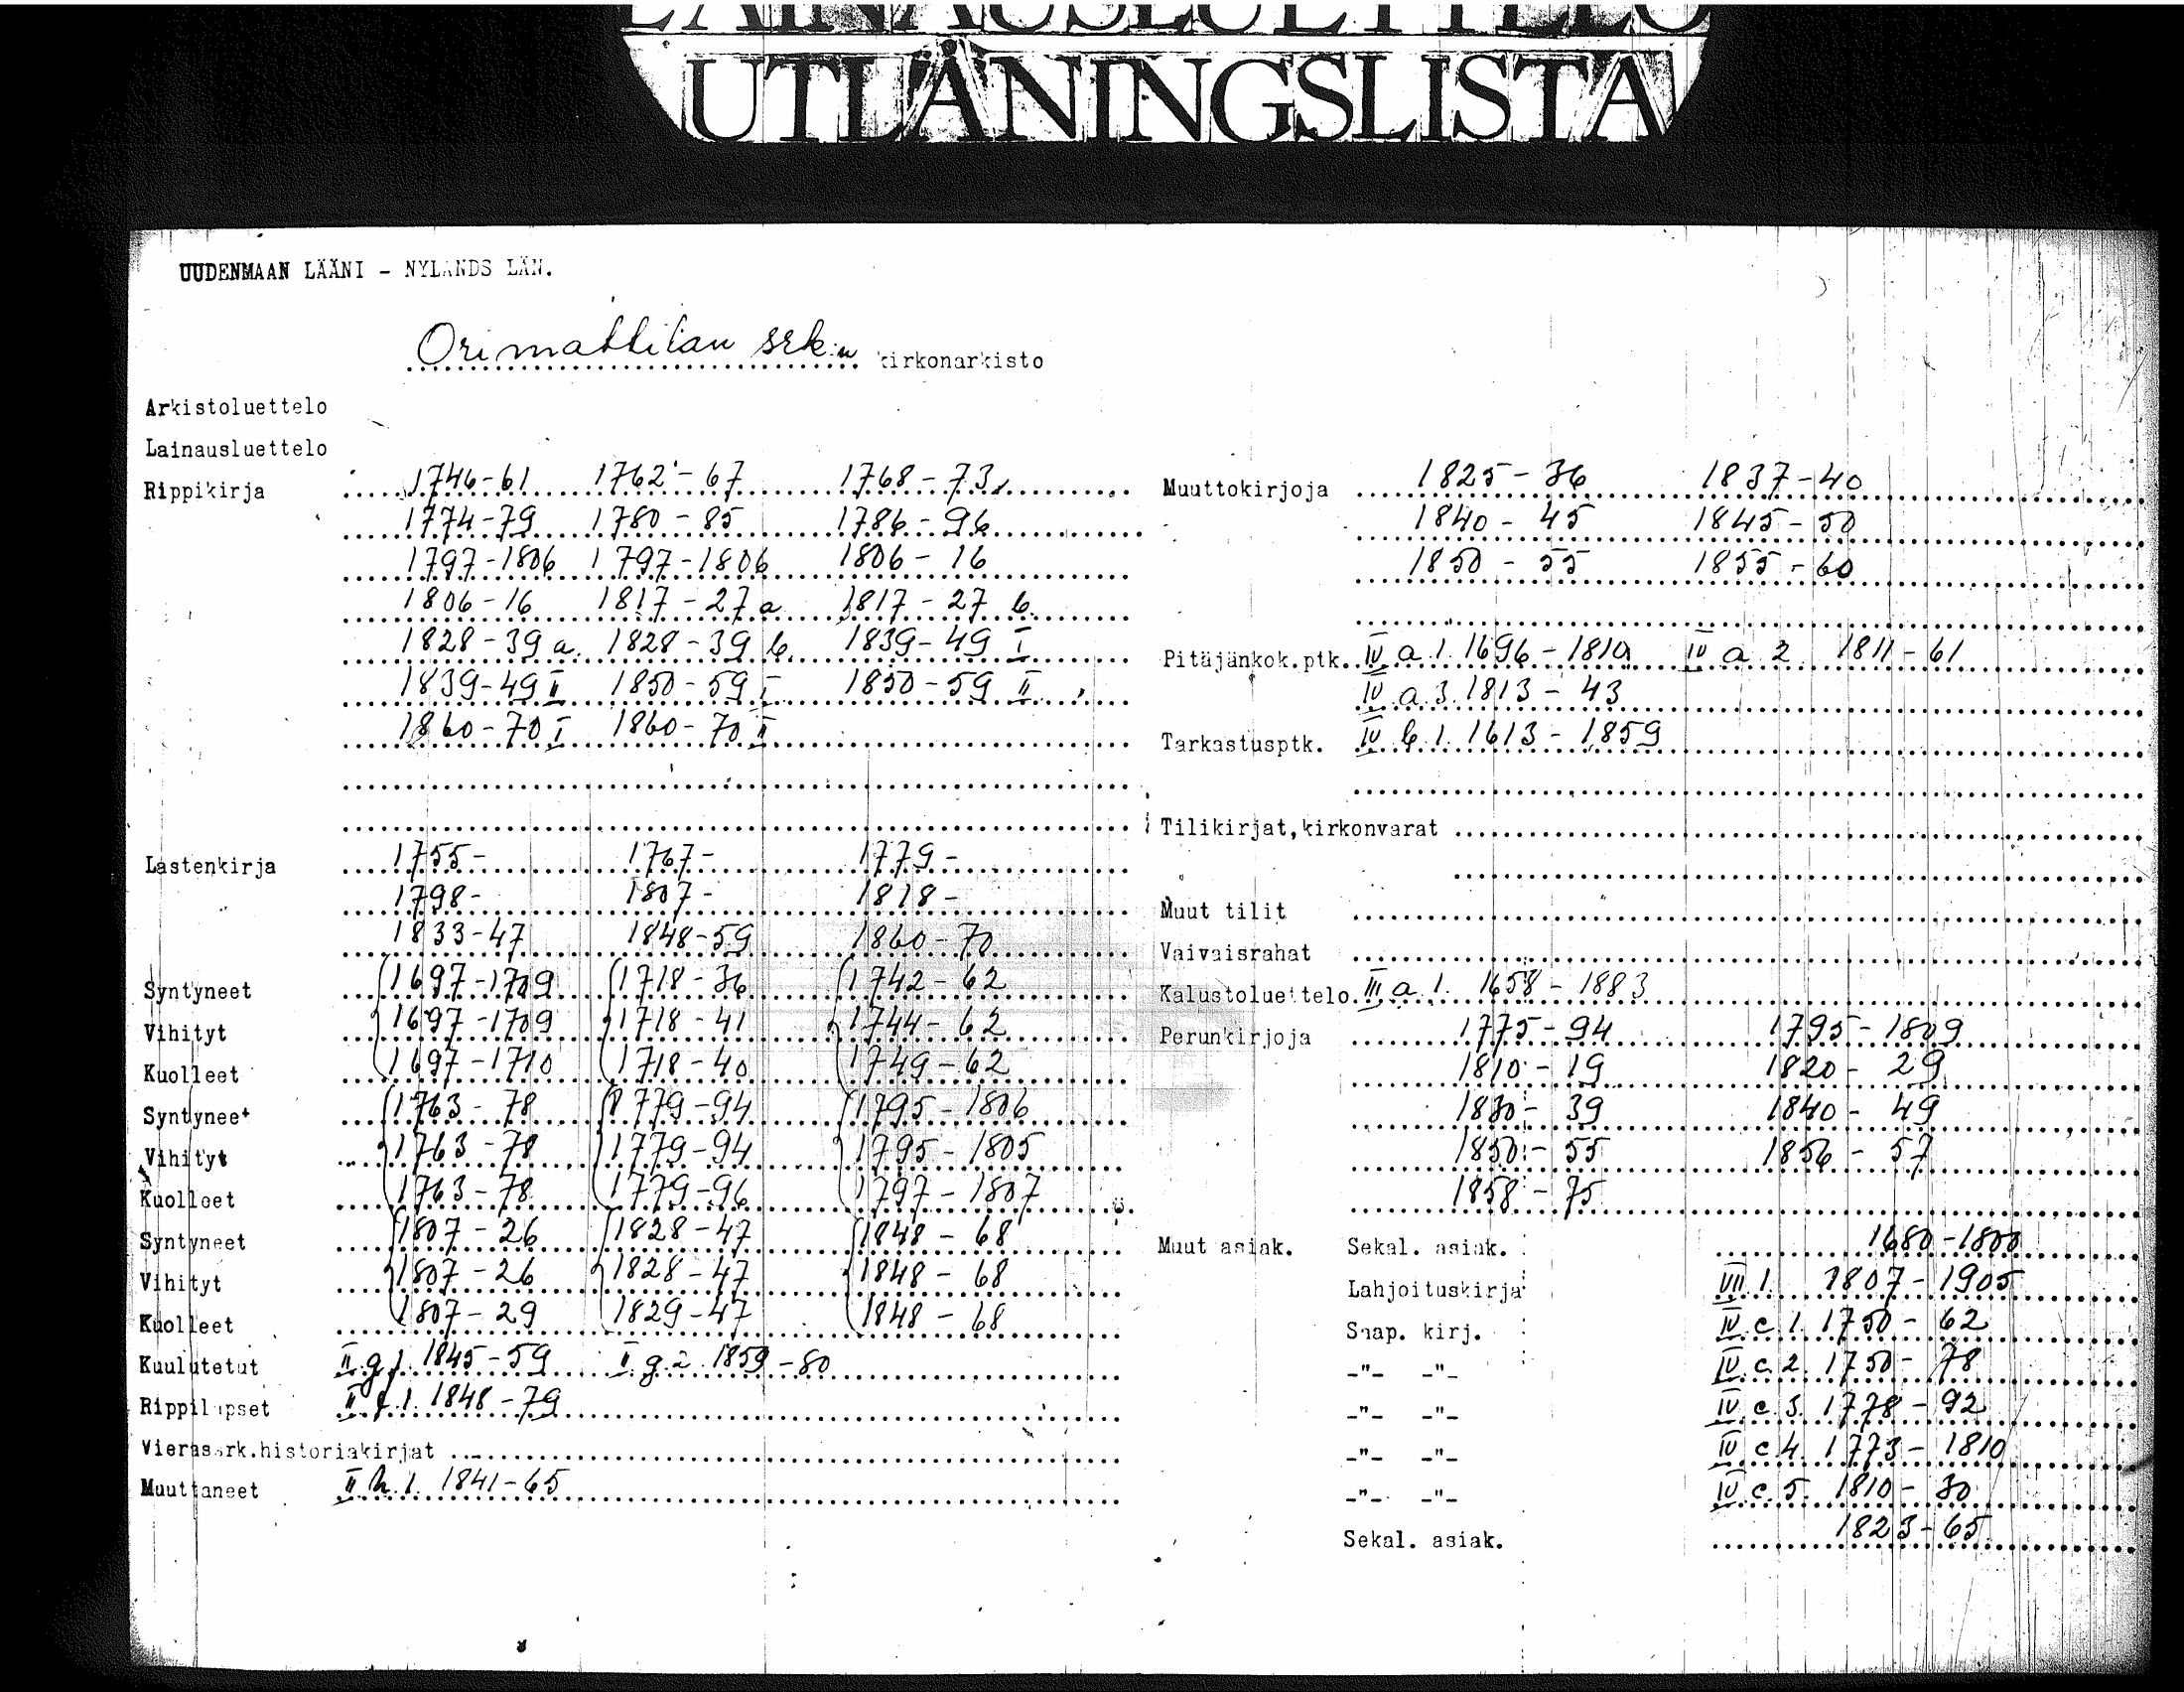 LAINAUSLUETTELO
UTLÅNINGSLISTA
UUDENMAAN LÄÄNI - NYLANDS LÄN.
Orimattilan srk:n kirkonarkisto
Arkistoluettelo
Lainausluettelo
Rippikirja 1746-61 1762-67 1768-73
1774-79 1780-85 1786-96
1797-1806 1797-1806 1806-16
1806-16 1817-27 a 1817-27 b.
1828-39 a. 1828-39 b. 1839-49 I
1839-49 II 1850-59 I 1850-59 II
1860-70 I 1860-70 II
Lastenkirja 1755- 1767- 1779-
1798- 1807- 1818-
1833-47 1848-59 1860-70
Syntyneet 1697-1709 1718-36 1742-62
Vihityt 1697-1709 1718-41 1744-62
Kuolleet 1697-1710 1718-40 1749-62
Syntyneet 1763-78 1779-94 1795-1806
Vihityt 1763-78 1779-94 1795-1805
Kuolleet 1763-78 1779-96 1797-1807
Syntyneet 1807-26 1828-47 1848-68
Vihityt 1807-26 1828-47 1848-68
Kuolleet 1807-29 1829-47 1848-68
Kuulutetut II g 1. 1845-59 II g 2 1859-80
Rippilapset II f 1. 1848-79
Vierassrk.historiakirjat
Muuttaneet II h. 1. 1841-65
Muuttokirjoja 1825-36 1837-40
1840-45 1845-50
1850-55 1855-60
Pitäjänkok.ptk. IV a 1. 1696-1810 IV a 2 1811-61
IV a 3. 1813-43
Tarkastusptk. IV b. 1. 1613-1859
Tilikirjat,kirkonvarat
Muut tilit
Vaivaisrahat
Kalustoluettelo III a 1. 1658-1883
Perunkirjoja 1775-94 1795-1809
1810-19 1820-29
1830-39 1840-49
1850-55 1856-57
1858-75
Muut asiak. Sekal. asiak. 1680-1800
Lahjoituskirja VII 1. 1807-1905
Saap. kirj. IV c. 1. 1750-62
-"- -"- IV c. 2. 1750-78
-"- -"- IV c. 3. 1778-92
-"- -"- IV c 4. 1773-1810
-"- -"- IV c. 5. 1810-30
Sekal. asiak. 1823-65